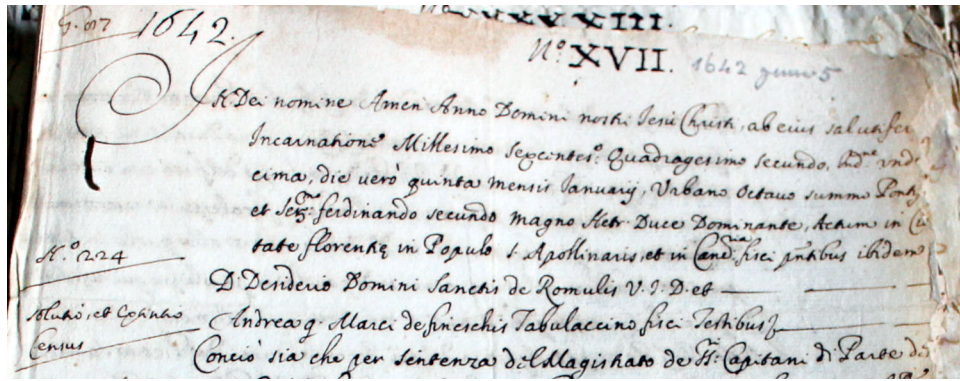 1642.
N.º XVII. 1642 genn 5
In Dei nomine Amen Anno Domini nostri Iesu Christi, ab eius salutifer
Incarnatione Millesimo sexcentes.º Quadragesimo secundo, Ind.ne und
cima, die verò quinta mensis Ianuarij, Urbano Octavo summo Pontif
et Ser.mo ferdinando secundo magno Hetr. Duce Dominante, Actum in Ci
tate florentię in Populo S. Apollinaris, et in Canc.ria fisci pntibus ibidem
N.º 224
D. Desiderio Domini Sanctis de Romulis V. I. D. et
Andrea q. Marci de fineschis Tabulaccino fisci Testibus
solutio, et
Census
Conciò sia che per sentenza del Magistrato de SS.ri Capitani di Parte di